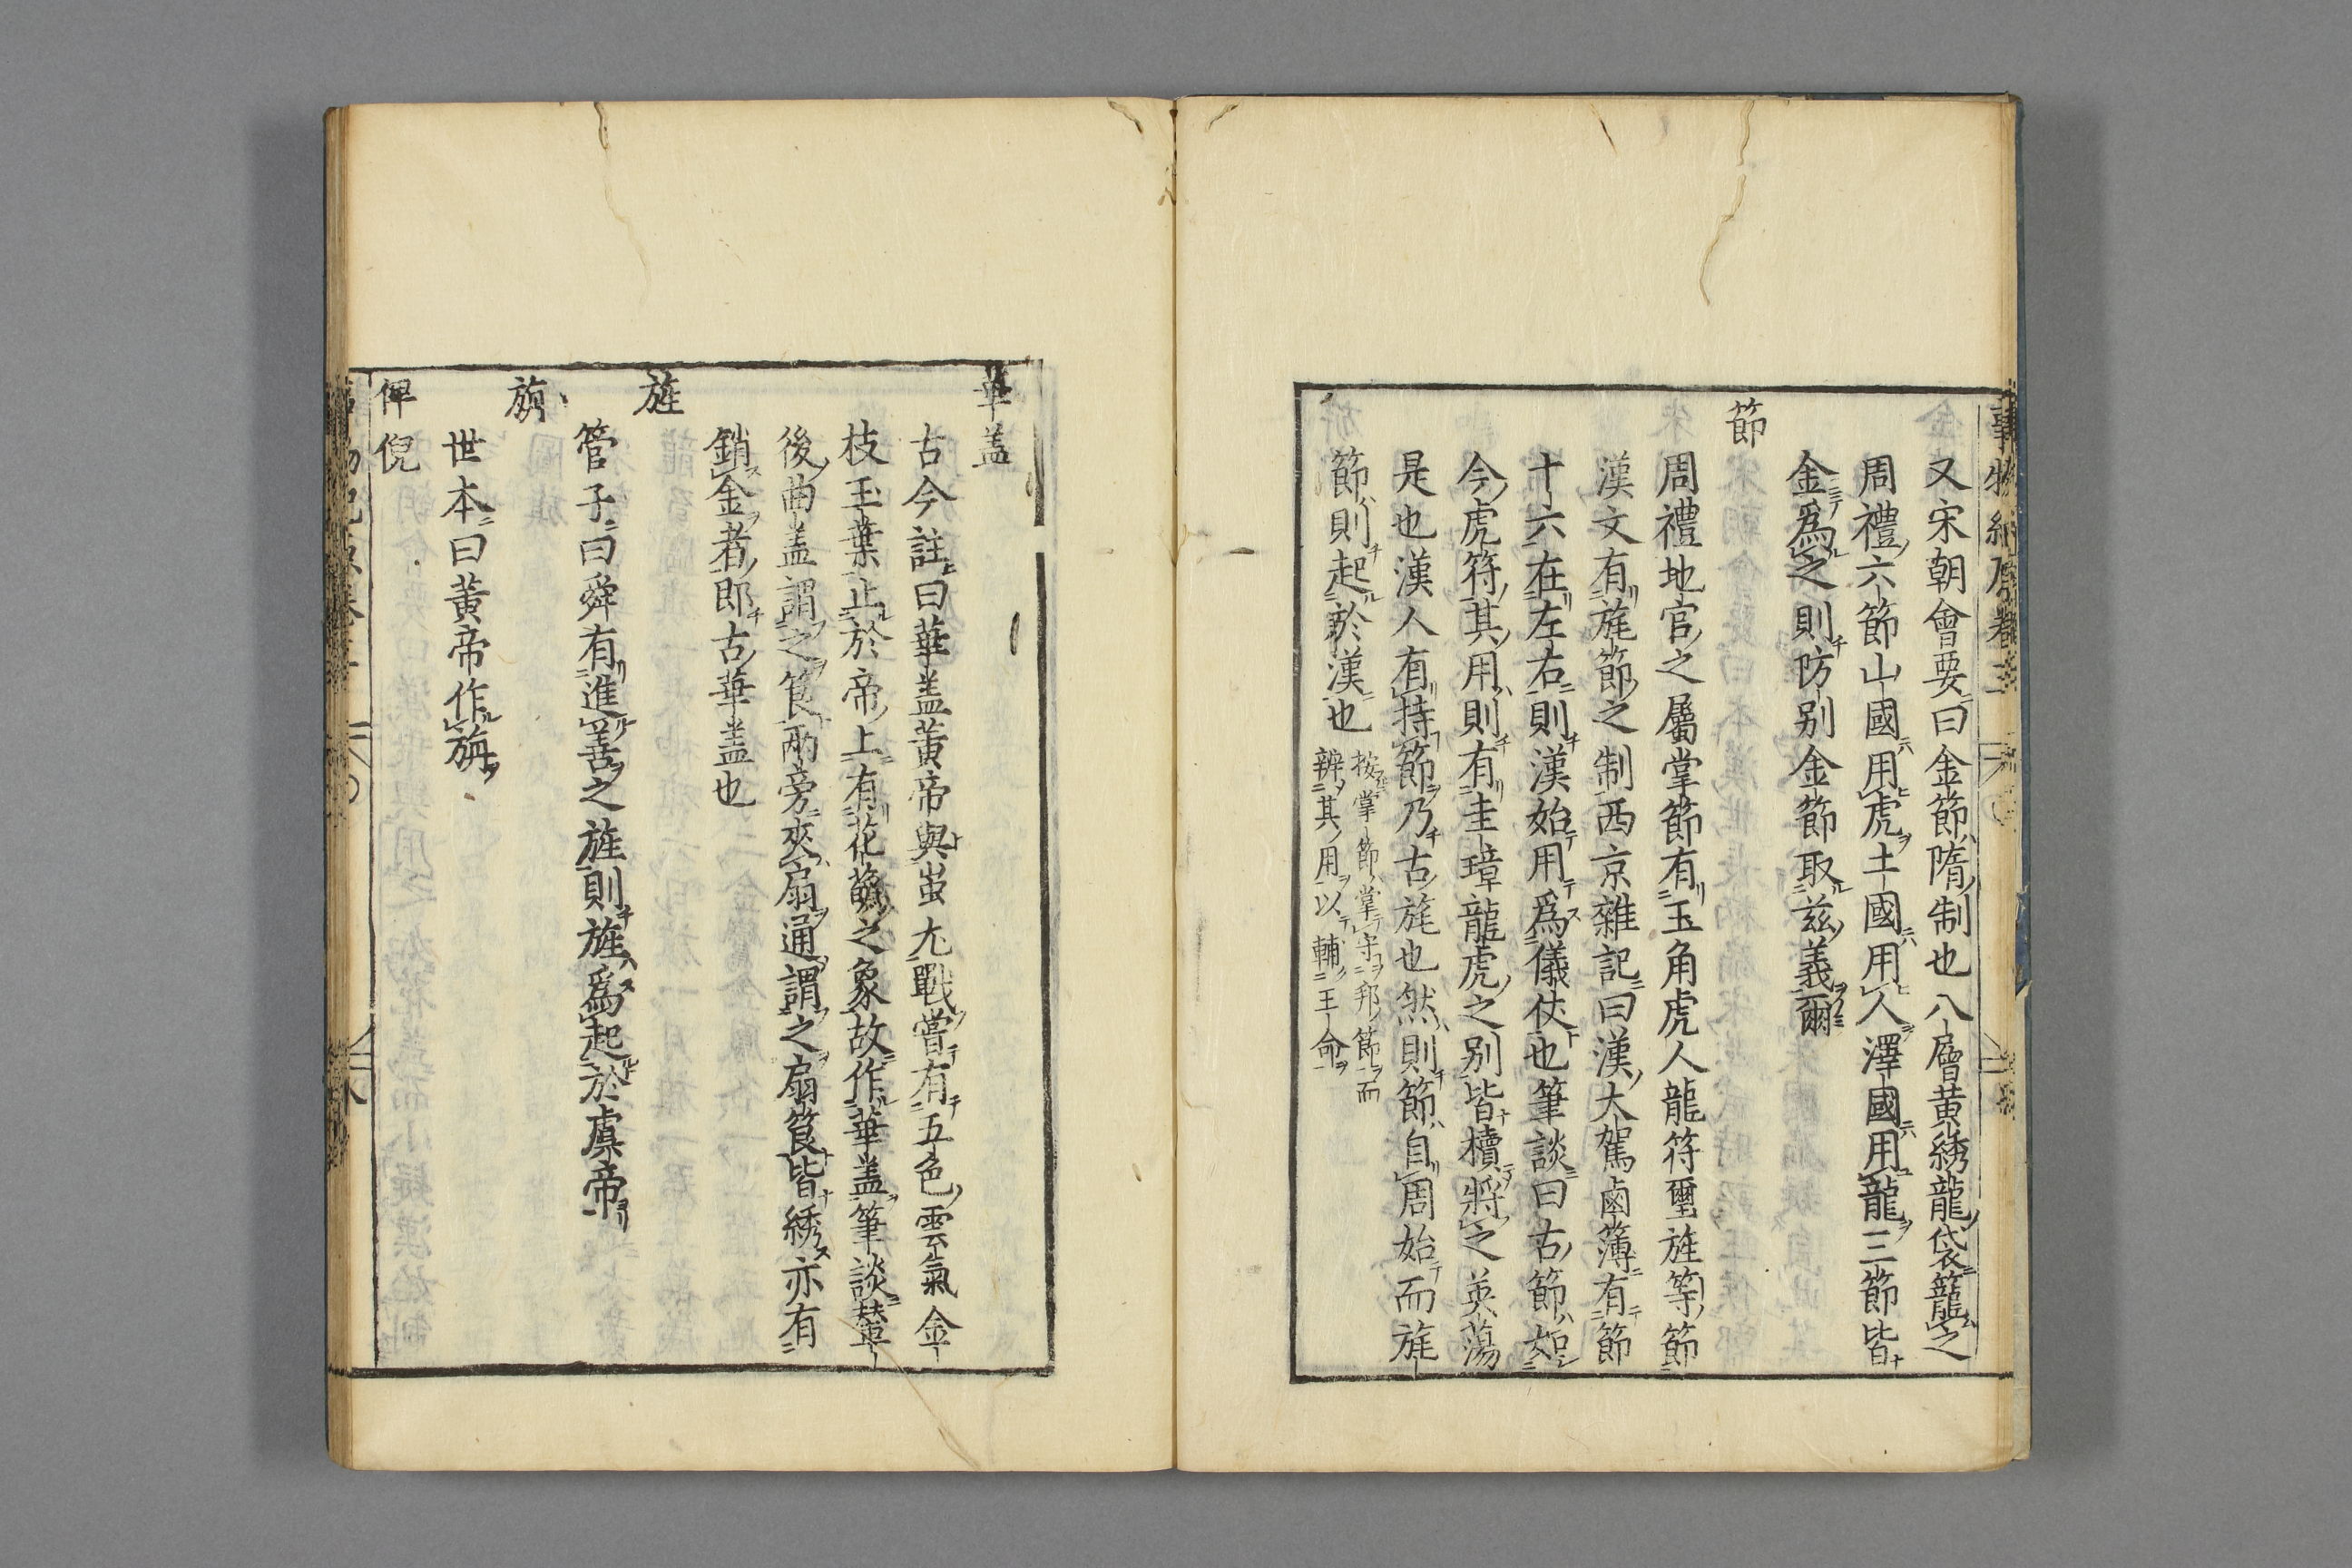 事物紀原卷三
又宋朝會要曰金節隋制也八層黄綉龍袋籠之
周禮六節山國用虎土國用人澤國用龍三節皆
金爲之則防别金節取兹義爾
節
周禮地官之屬掌節有玉角虎人龍符璽旌等節
漢文有旄節之制西京雜記曰漢大駕鹵簿有節
十六在左右則漢始用爲儀仗也筆談曰古節如
今虎符其用則有圭璋龍虎之别皆櫝將之英蕩
是也漢人有持節乃古旄也然則節自周始而旄
節則起於漢也
按掌節掌守邦節而
辨其用以輔王命
華盖
古今註曰華盖黄帝與蚩尤戰嘗有五色雲氣金
枝玉葉止於帝上有花蘤之象故作華盖筆談輦
後曲盖謂之筤兩旁夾扇通謂之扇筤皆綉亦有
銷金者即古華盖也
旌
管子曰舜有進善之旌則旌爲起於虞帝
旃
世本曰黄帝作旃
俾倪